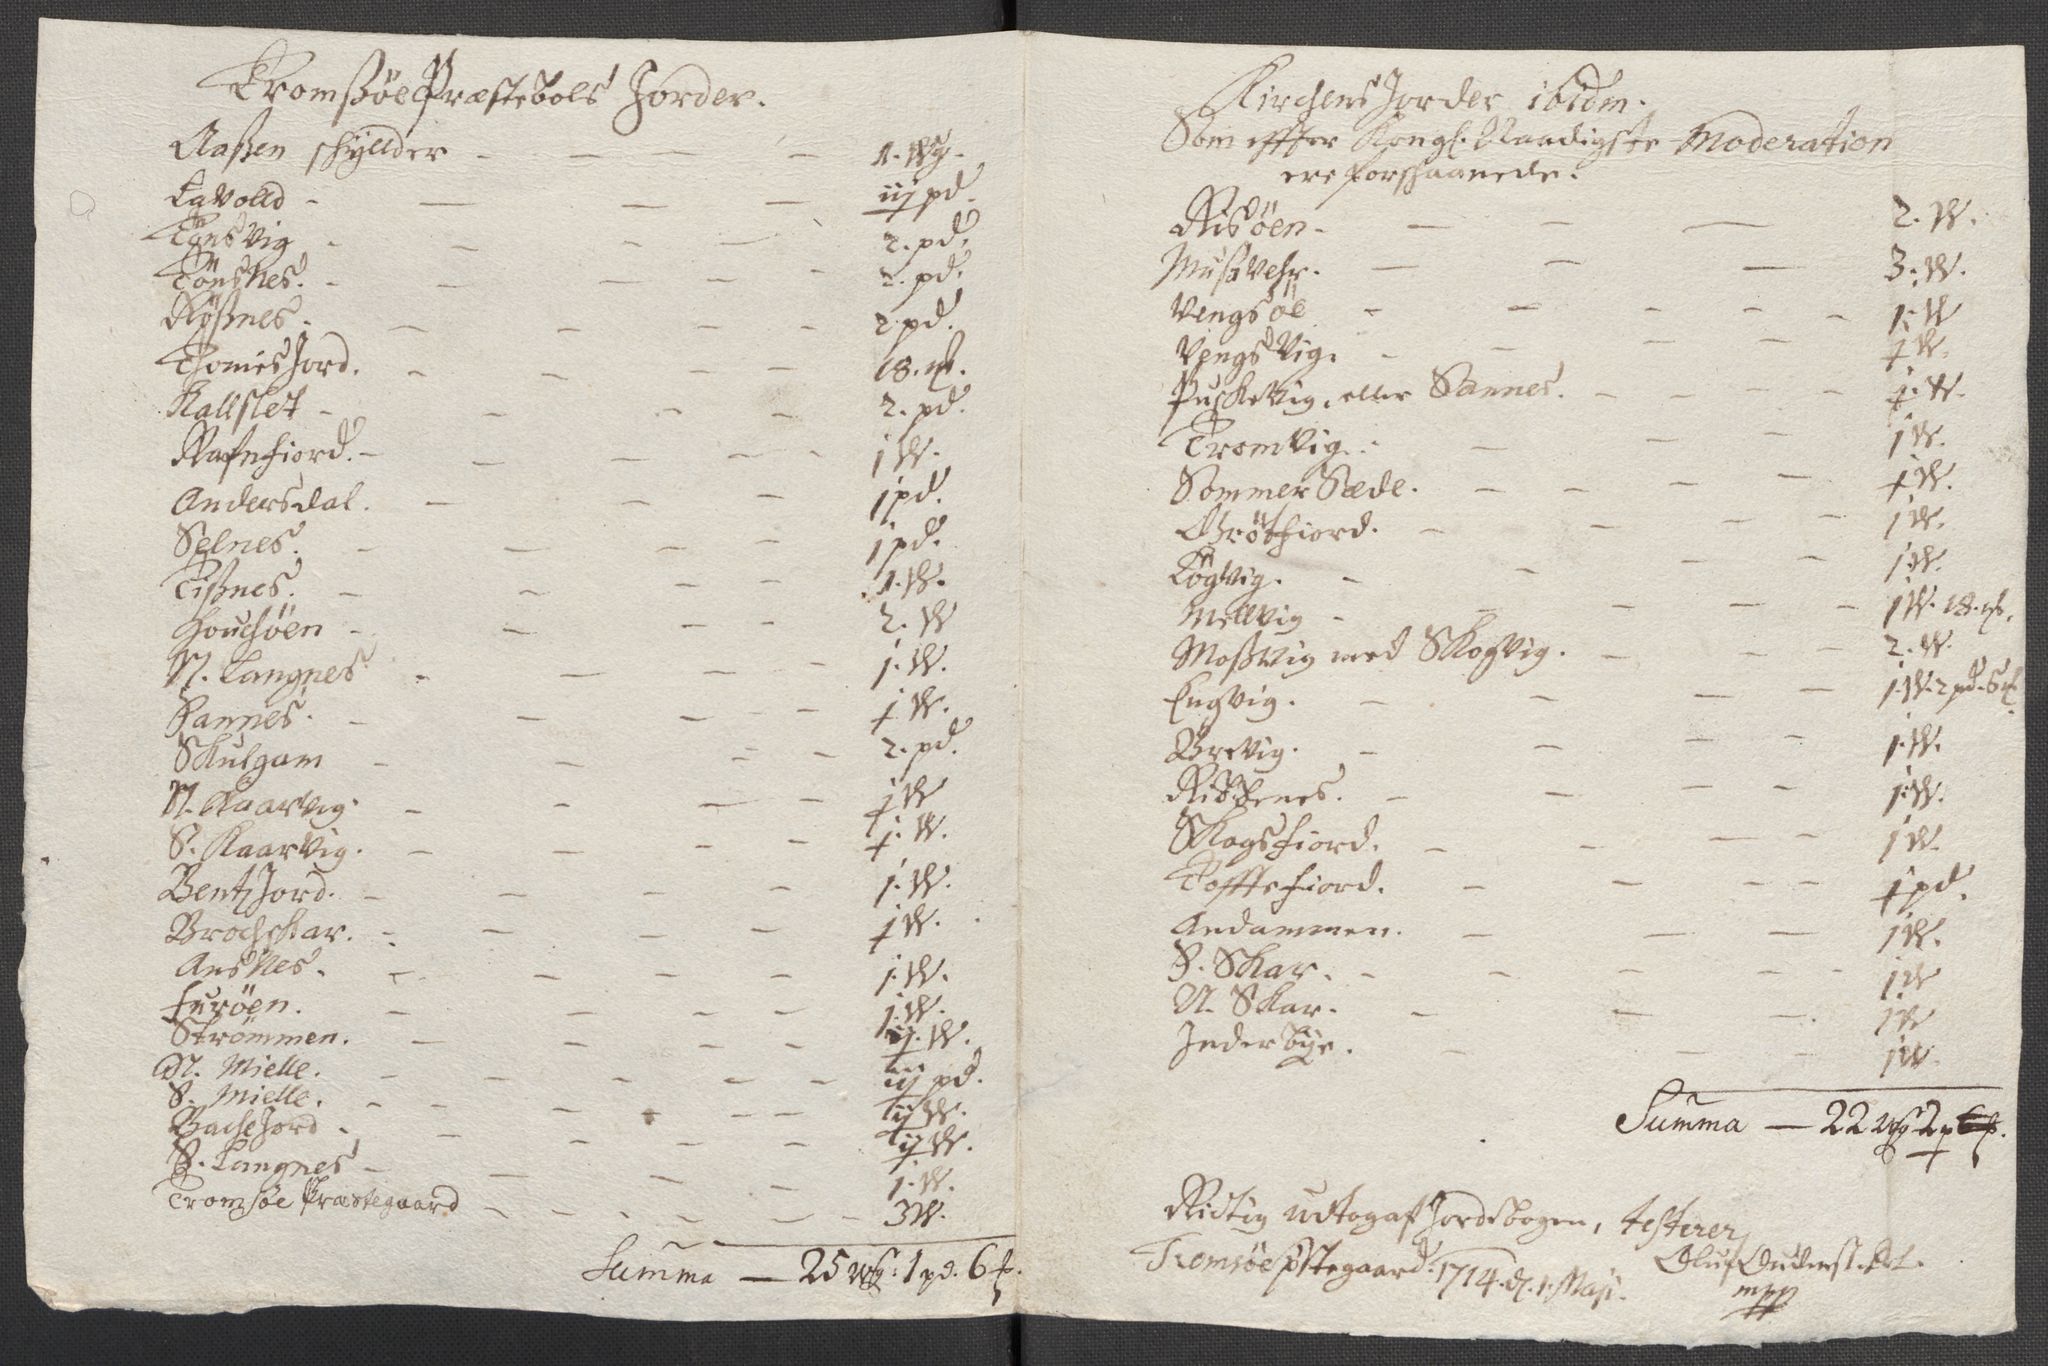 Tromssöe Præstebols Jorder.
Aassen schyllder - - - - 1. Wg.
Lavolld - - - - iij pd.
Tönsvig - - - - 2. pd.
Tönsnes. - - - - 2. pd.
Rössnes. - - - - 2 pd.
Thomesjord. - - - 18. mk.
Kallslet - - - - 2. pd.
Rafnfiord. - - - - 1 W.
Andersdal. - - - 1 pd.
Selnes. - - - - 1 pd.
Tissnes. - - - - 1. W.
Houchöen - - - - 2. W
N. Langnes - - - - 1. W.
Kannes. - - - - W.
Skulgam - - - - 2. pd.
N. Kaarvig. - - - - W
S. Kaarvig. - - - - W.
Bentjord. - - - - 1. W.
Brochskar. - - - - W.
Ansnes. - - - - 1. W.
Furöen. - - - - 1. W.
Strömmen. - - - - W.
N. Mielle. - - - - pd.
S. Mielle. - - - - W.
Bachejord - - - - W.
S. Langnes - - - - 1. W.
Tromsöe Præstegaard - - - - 3 W.
Summa — 25 Wg: 1 pd. 6
Kirchens Jorder ibidm.
Som effter Kongl. Naadigste Moderation
ere forschaanede.
Risöen. - - - 2. W.
Mussvehr. - - - 3. W.
Vengsöe - - - - 1. W
Vengsvig. - - - - W.
Puschevig, eller Sannes. - - - W.
Tromvig. - - - 1 W.
Sommer Sæde. - - - - W.
Grötfiord. - - - 1 W.
Lögvig. - - - 1 W.
Mellvig - - - - 1 W. 18. mk.
Mossvig med Skogvig. - - - 2. W.
Engvig. - - - - 1. W. 2 pd. 6
Brevig. - - - - 1. W.
Risenes. - - - - 1. W.
Skogsfiord. - - - - 1 W.
Tofftefiord. - - - - pd.
Andammen. - - - 1 W.
S. Skar. - - - - 1 W
N. Skar. - - - 1 W
Inderbye. - - - 1 W.
Summa — 22 Wg 2 p
Rictig udtog af Jordebogen, testerer
Tromsöe pstegaard. 1714. d. 1. Maji.
Oluf
mpp